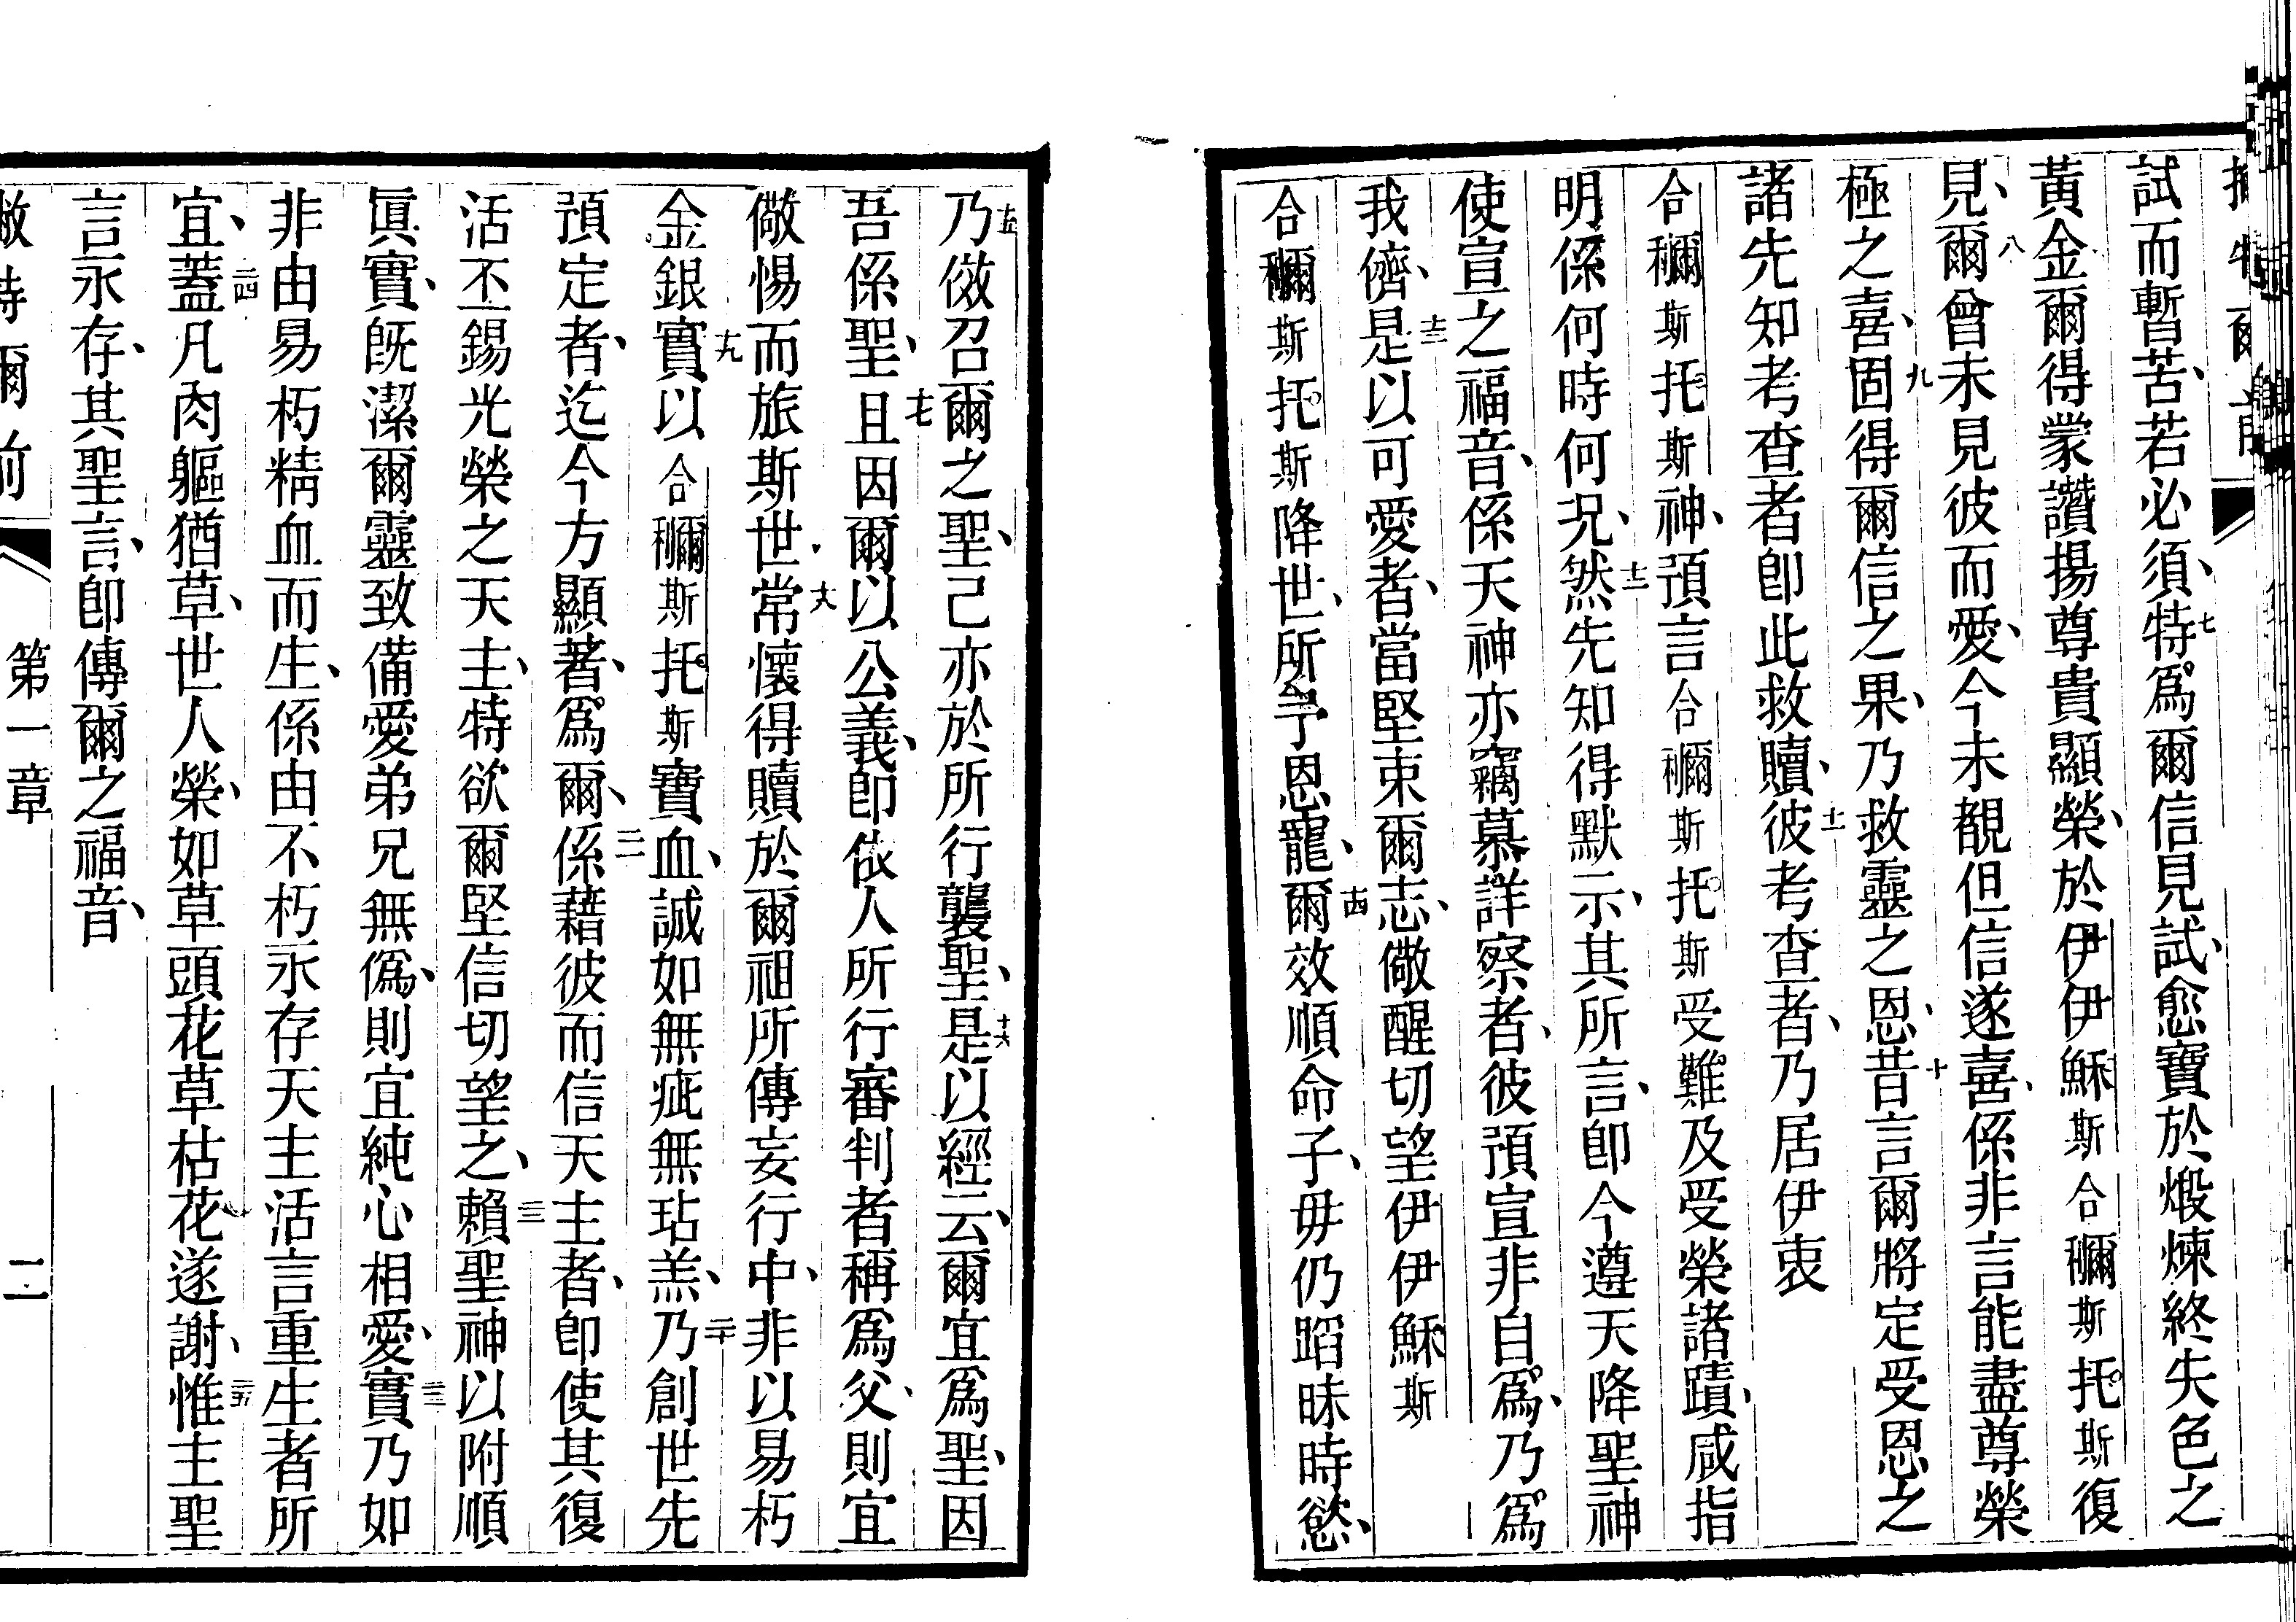 試而暫苦、若必須、七特爲爾信見試、愈寶於煅煉終失色之
黃金爾得蒙讚揚尊貴顯榮、於伊伊穌斯合穪斯托斯復
見、八爾曾未見彼而愛、今未覩但信遂喜、係非言能盡尊榮
極之喜、九固得爾信之果、乃救靈之恩、十昔言爾將定受恩之
諸先知考查者卽此救贖、十一彼考查者、乃居伊衷
合穪斯托斯神、預言合穪斯托斯受難及受榮諸蹟、咸指
明係何時何況、十二然先知得默示、其所言、卽今遵天降聖神
使宣之福音、係天神亦竊慕詳察者、彼預宣非自爲、乃爲
我儕、十三是以可愛者、當堅束爾志、儆醒切望伊伊穌斯
合穪斯托斯降世、所予恩寵、十四爾效順命子、毋仍蹈昧時慾、
十五乃倣召爾之聖、己亦於所行襲聖、十六是以經云、爾宜爲聖、因
吾係聖、十七且因爾以公義、卽依人所行審判者稱爲父、則宜
儆惕而旅斯世、十八常懷得贖於爾祖所傳妄行中、非以易朽
金銀、十九實以合穪斯托斯寶血、誠如無疵無玷羔、二十乃創世先
預定者、迄今方顯著、爲爾、二一係藉彼而信天主者、卽使其復
活丕錫光榮之天主、特欲爾堅信切望之、二二賴聖神以附順
眞實、旣潔爾靈致備愛弟兄無僞、則宜純心相愛、二三實乃如
非由易朽精血而生、係由不朽永存天主活言重生者所
宜、二四蓋凡肉軀猶草、世人榮、如草頭花草枯花遂謝、二五惟主聖
言永存、其聖言、卽傳爾之福音、
爾前
第一章
二